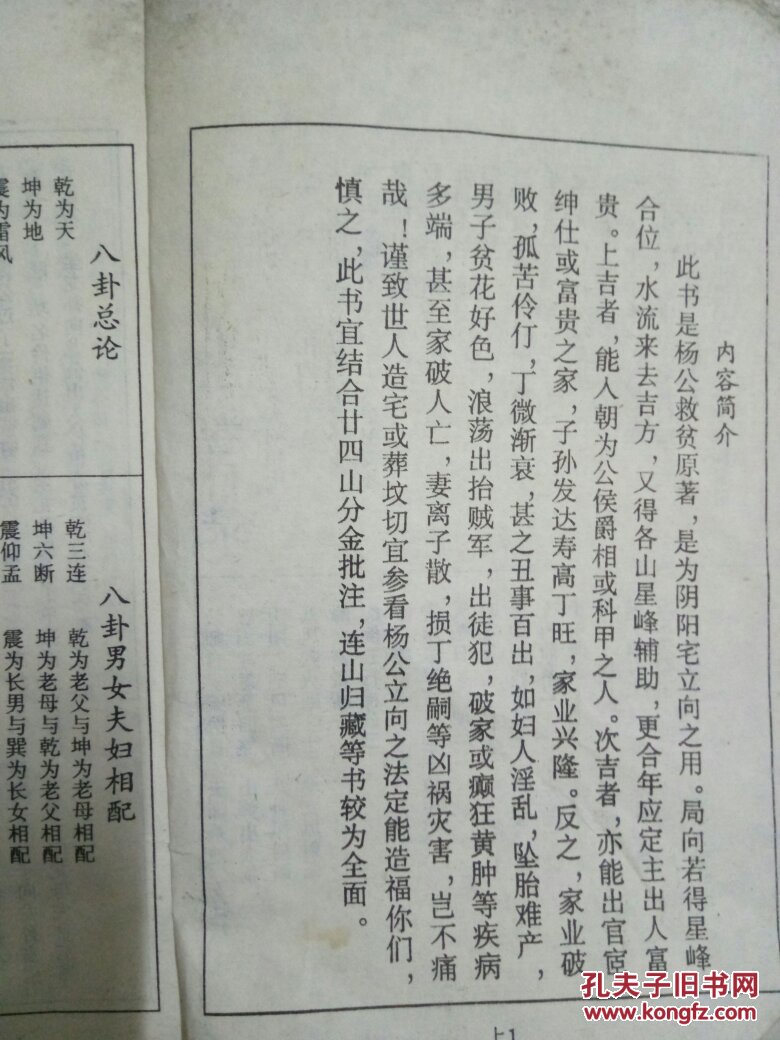 内容简介
此书是杨公救贫原著，是为阴阳宅立向之用。局向若得星峰
合位，水流来去吉方，又得各山星峰辅助，更合年应定主出人富
贵。上吉者，能入朝为公侯爵相或科甲之人。次吉者，亦能出官宦
绅仕或富贵之家，子孙发达寿高丁旺，家业兴隆。反之，家业破
败，孤苦伶仃，丁微渐衰，甚之丑事百出，如妇人淫乱，坠胎难产，
男子贫花好色，浪荡出抬贼军，出徒犯，破家或癫狂黄肿等疾病
多端，甚至家破人亡，妻离子散，损丁绝嗣等凶祸灾害，岂不痛
哉！谨致世人造宅或葬坟切宜参看杨公立向之法定能造福你们，
慎之，此书宜结合廿四山分金批注，连山归藏等书较为全面。
上1
八卦总论
乾为天
坤为地
震为雷风
八卦男女夫妇相配
乾三连 乾为老父与坤为老母相配
坤六断 坤为老母与乾为老父相配
震仰盂 震为长男与巽为长女相配
孔夫子旧书网
www.kongfz.com